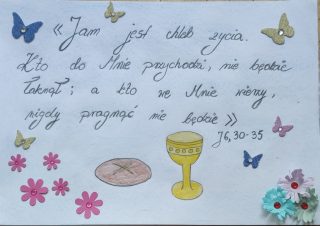 « Jam jest chleb życia.
Kto do Mnie przychodzi, nie będzie
łaknął; a kto we Mnie wierzy,
nigdy pragnąć nie będzie »
J6,30-35